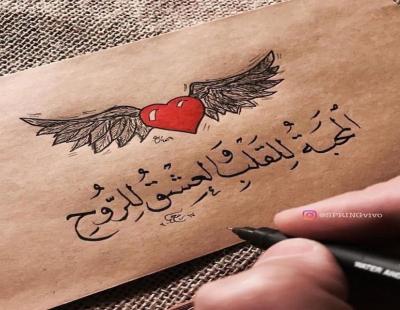 المحبة للقلب والعشق للروح
@SPRINGvivo
WATER AND